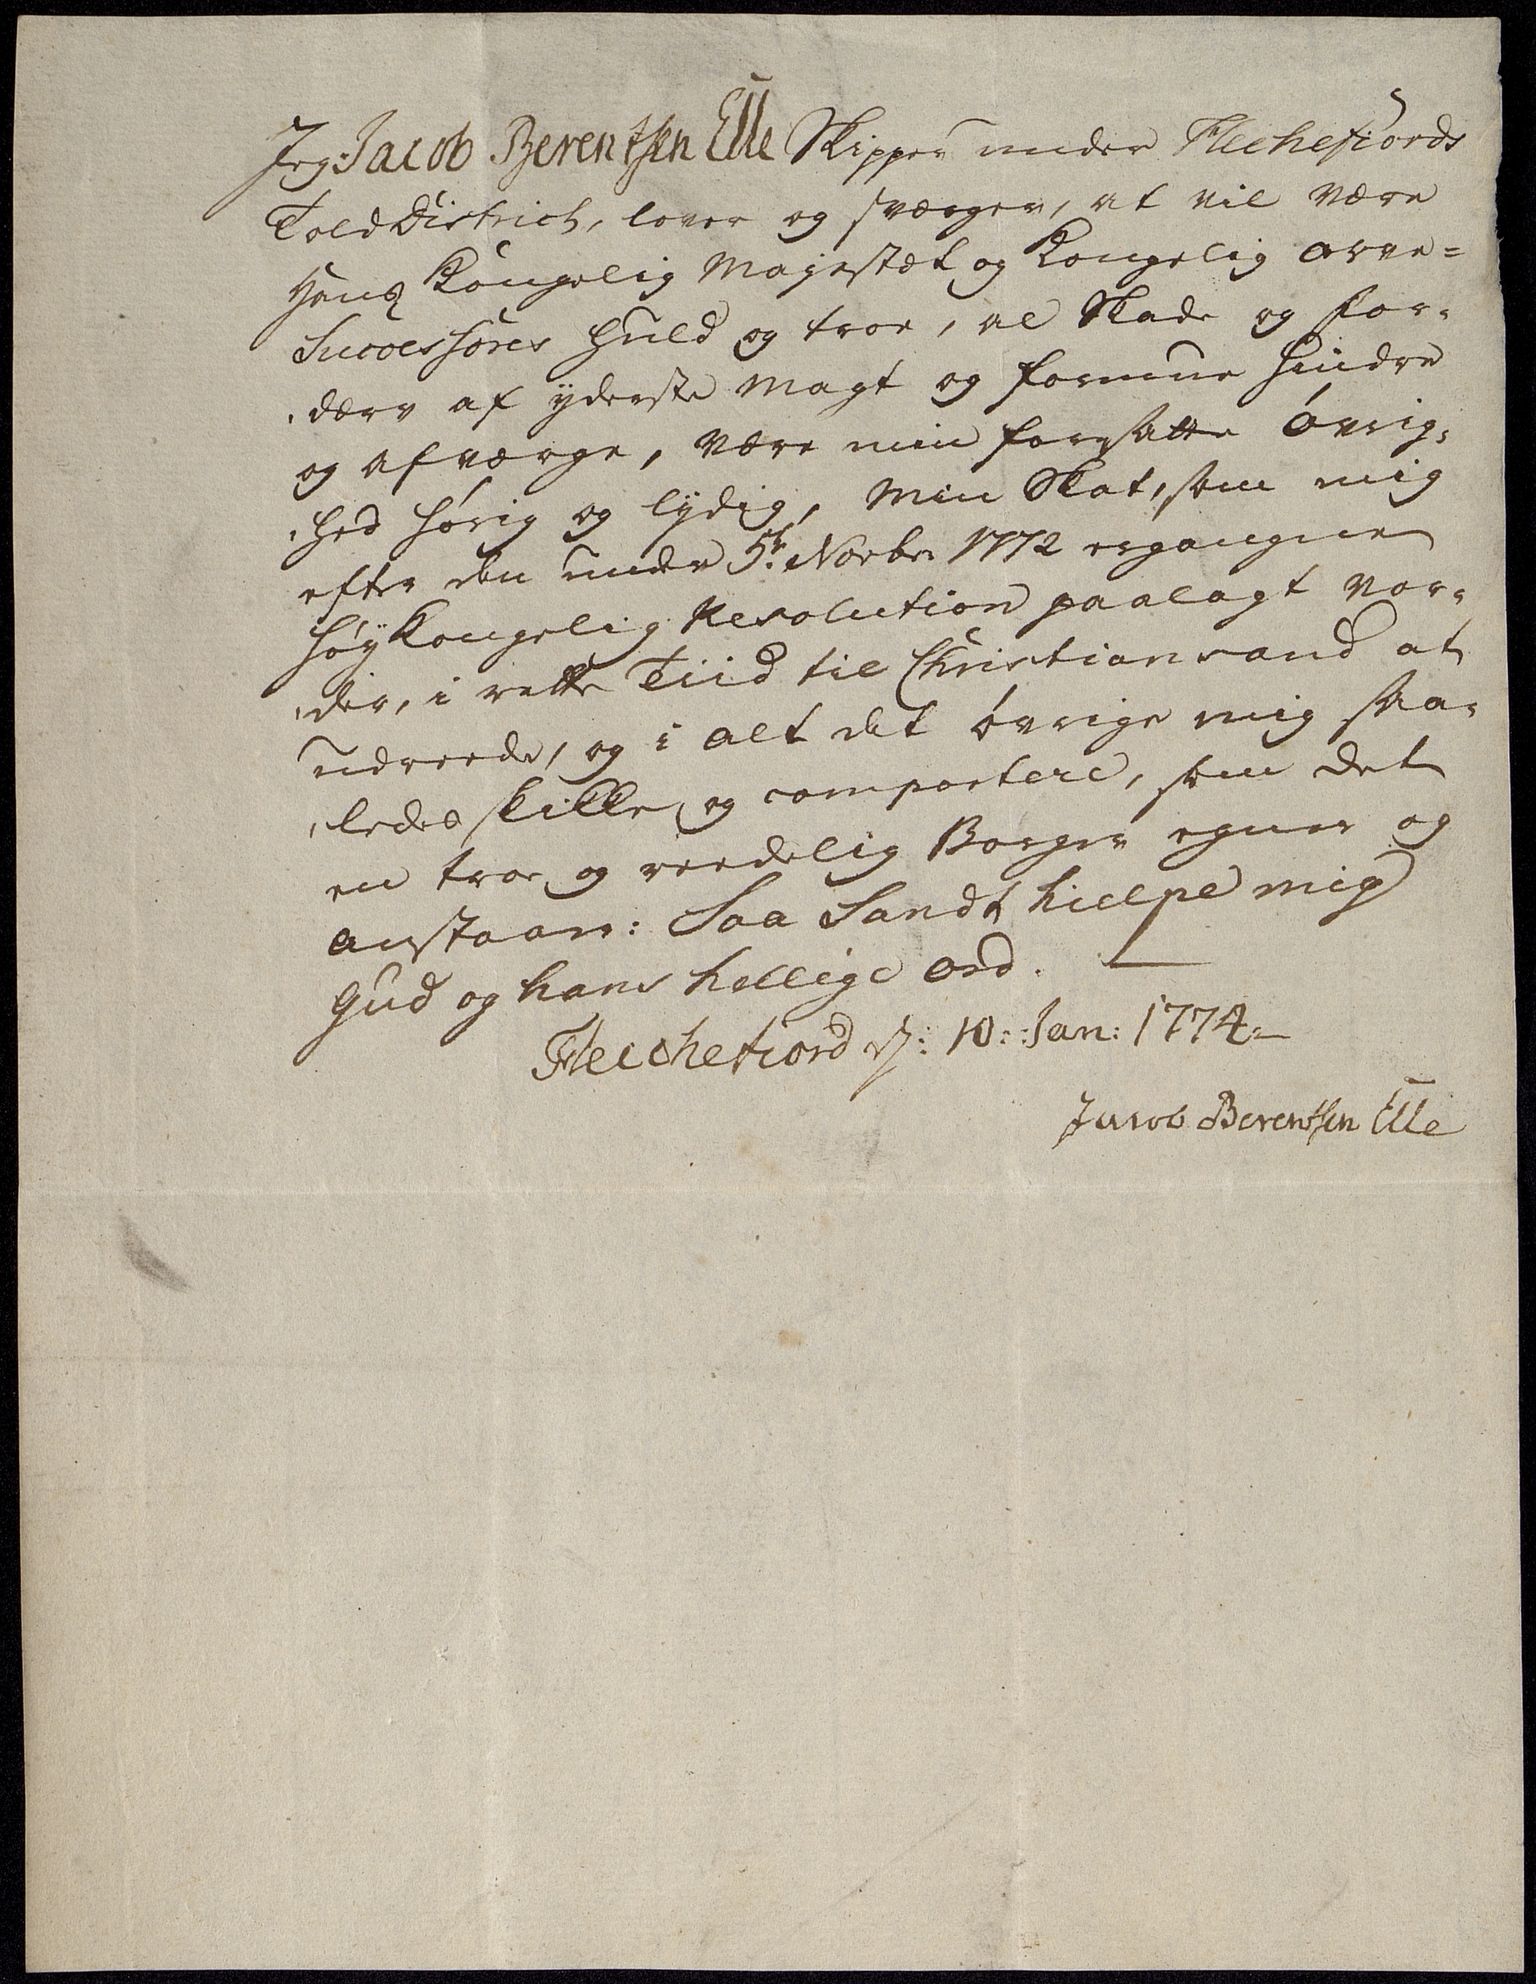 Jeg Jacob Berentsen Elle Skipper under Flechefiords
Told District, lover og sværger, at vil være
Hans Kongelig Majestæt og Kongelig Arve=
Successores huld og troe, al Skade og for-
dærv af yderste Magt og formue hindre
og afværge, være min foresatte Øvrig-
hed hørig og lydig, Min Skat, som mig
efter den under 5te Novbr 1772 ergangne
høy Kongelig Resolution paalagt vor-
der, i rette Tiid til Christiansand at
udreede, og i alt det øvrige mig saa-
ledes skikke og comportere, som det
en troe og reedelig Borger egner og
anstaar: Saa Sandt hielpe mig
Gud og hans hellige Ord.
Flechefiord d: 10: Jan: 1774
Jacob Berentsen Elle